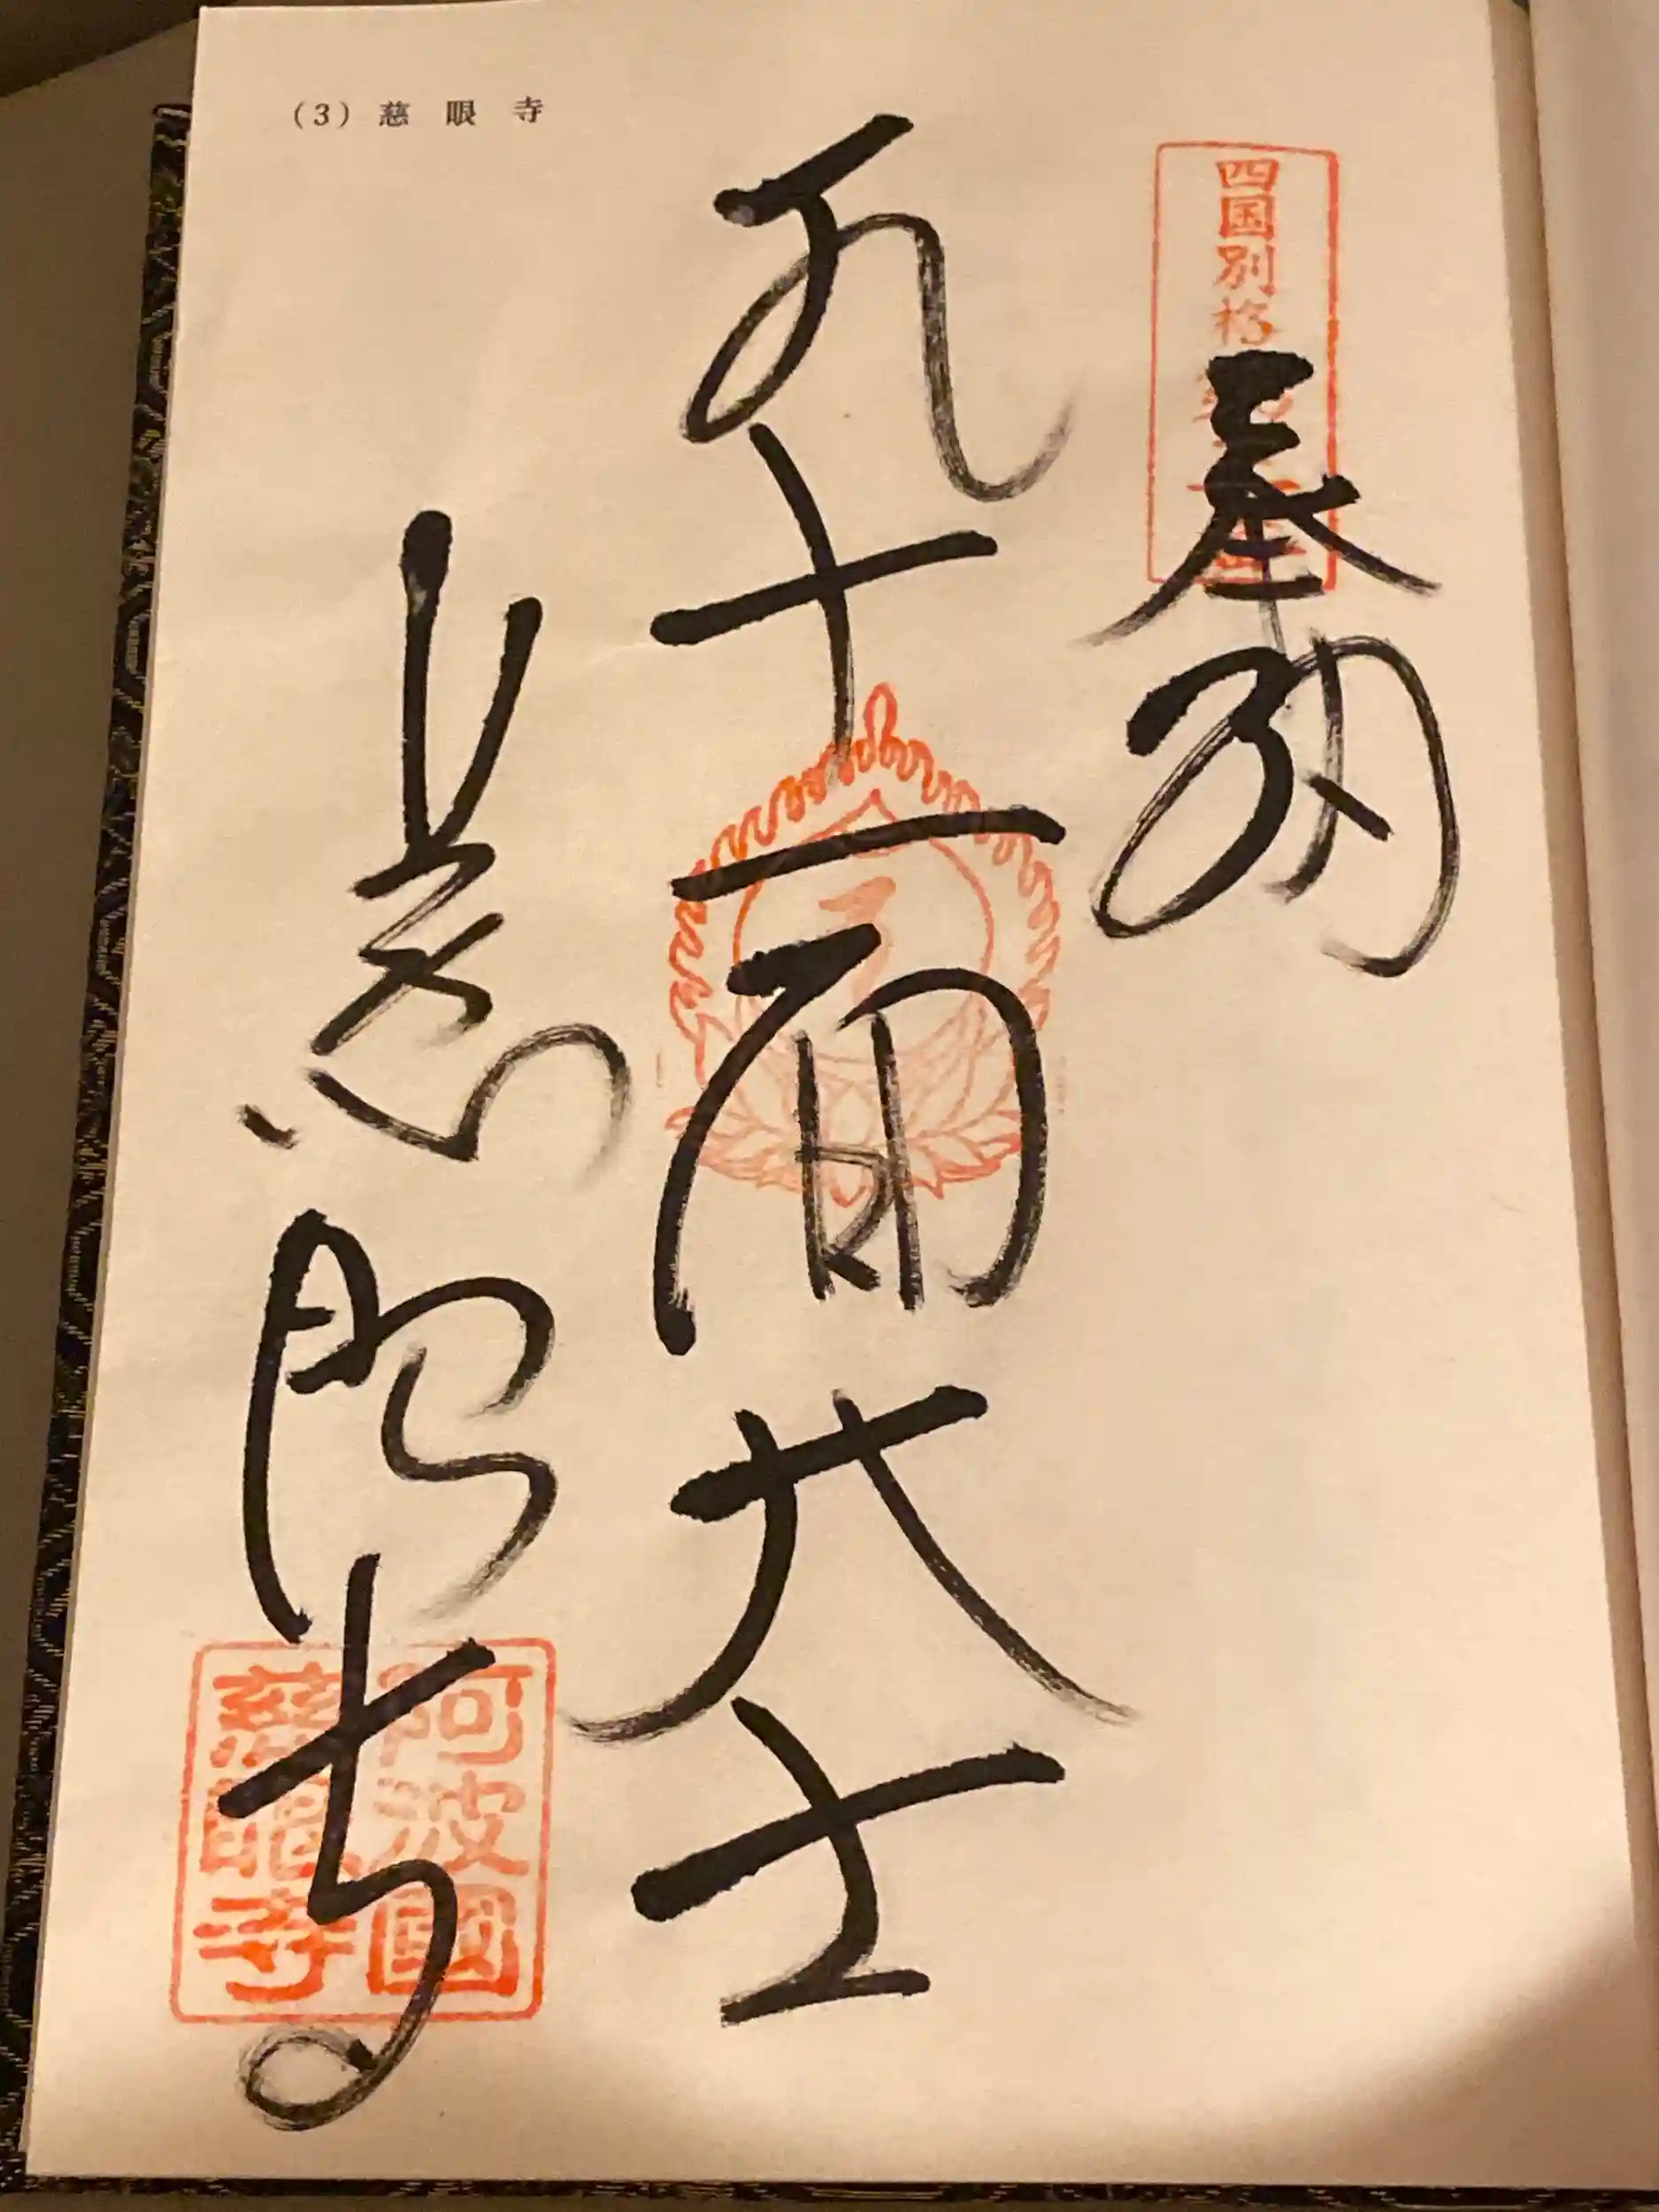 (3) 慈眼寺
四国別格
奉納
九十一面大士
慈眼寺
阿波國
慈眼寺